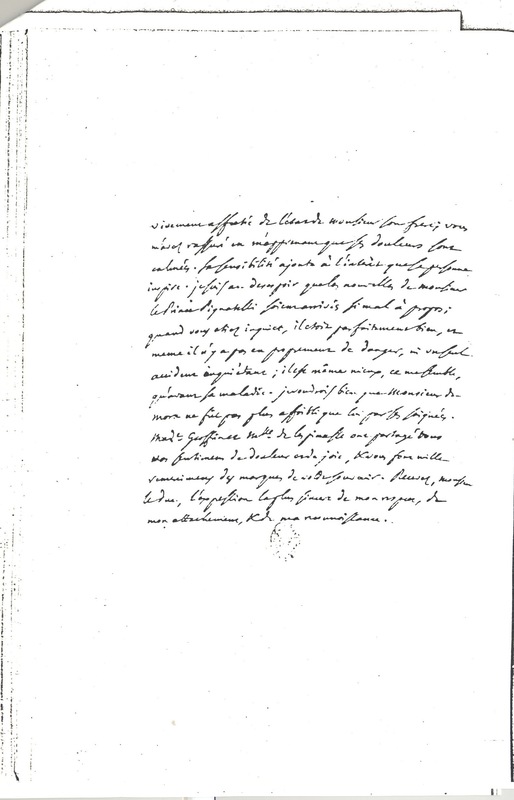 vivement affectée de l'état de monsieur son frere; vous
m'avez rassuré en m'apprenant que ses douleurs sont
calmées. sa sensibilité ajoute à l'intérêt que sa personne
inspire. je suis au desespoir que les nouvelles de monsieur
le Prince Pignatelli soient arrivées si mal à propos;
quand vous etiez inquiet, il etoit parfaitement bien, et
meme il n'y a pas eu proprement de danger, ni un seul
accident inquiétant; il est même mieux, ce me semble,
qu'avant sa maladie. je voudrois bien que Monsieur de
mora ne fut pas plus affoibli que lui par ses saignées.
Mad.e Geoffrin et Mlle de lespinasse ont partagé tous
vos sentimens de douleur et de joie, & vous font mille
remercimens des marques de votre souvenir. Recevez, monsieur
le duc, l'expression la plus sincere de mon respect, de
mon attachement, & de ma reconnoissance.